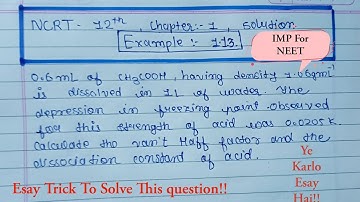 NCRT - 12th, Chapter:- 1, solution
Example :- 1.13.
IMP For
NEET
0.6mL of CH3COOH, having density 1.06gml-1
is dissolved in 1L of water. The
depression in freezing point observed
for this strength of acid was 0.0205°C.
Calculate the van't Hoff factor and the
dissociation constant of acid.
Ye
Karlo
Esay
Hai!!
Esay Trick To Solve This question!!